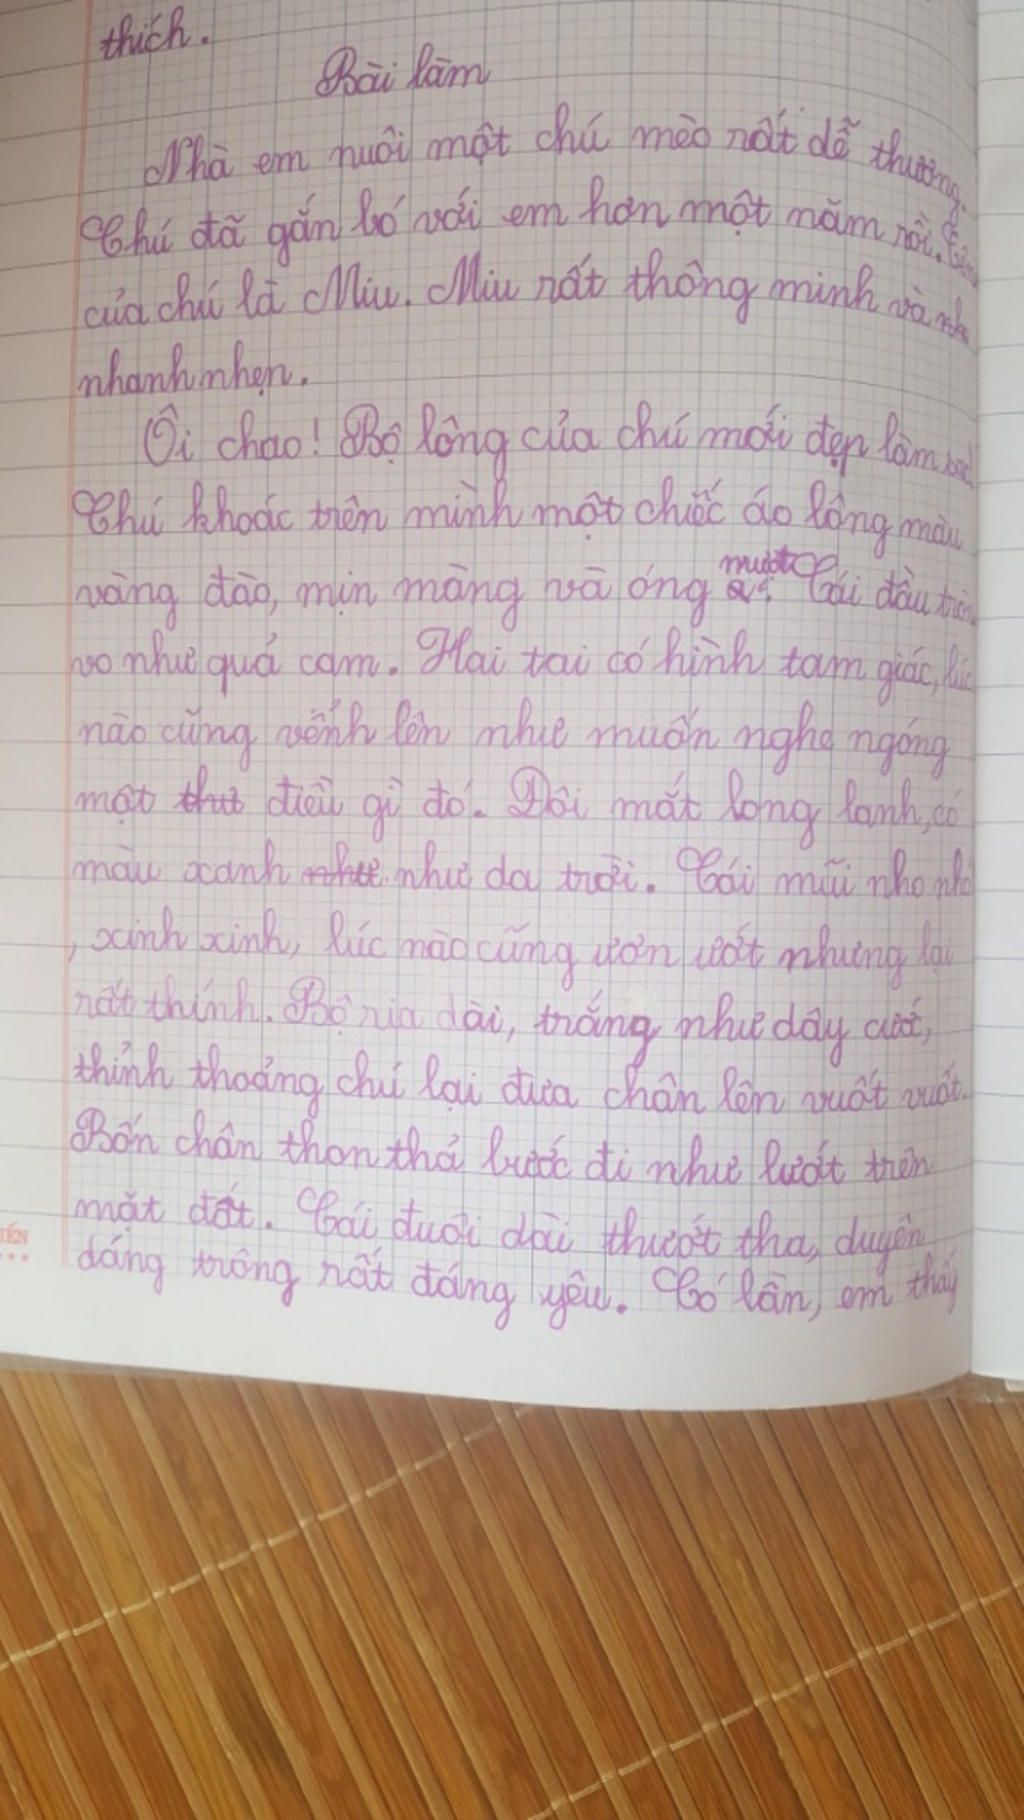 thích.
Bài làm
Nhà em nuôi một chú mèo rất dễ thương.
Chú đã gắn bó với em hơn một năm rồi. Tên
của chú là Miu. Miu rất thông minh và nh
nhanh nhẹn.
Ôi chao! Bộ lông của chú mới đẹp làm sao!
Chú khoác trên mình một chiếc áo lông màu
vàng đào, mịn màng và óng mượt. Cái đầu tròn
vo như quả cam. Hai tai có hình tam giác, lúc
nào cũng vểnh lên như muốn nghe ngóng
một thứ điều gì đó. Đôi mắt long lanh, có
màu xanh như như da trời. Cái mũi nho nhỏ
, xinh xinh, lúc nào cũng ươn ướt nhưng lại
rất thính. Bộ ria dài, trắng như dây cước,
thỉnh thoảng chú lại đưa chân lên vuốt vuốt.
Bốn chân thon thả bước đi như lướt trên
mặt đất. Cái đuôi dài thướt tha, duyên
dáng trông rất đáng yêu. Có lần, em thấy